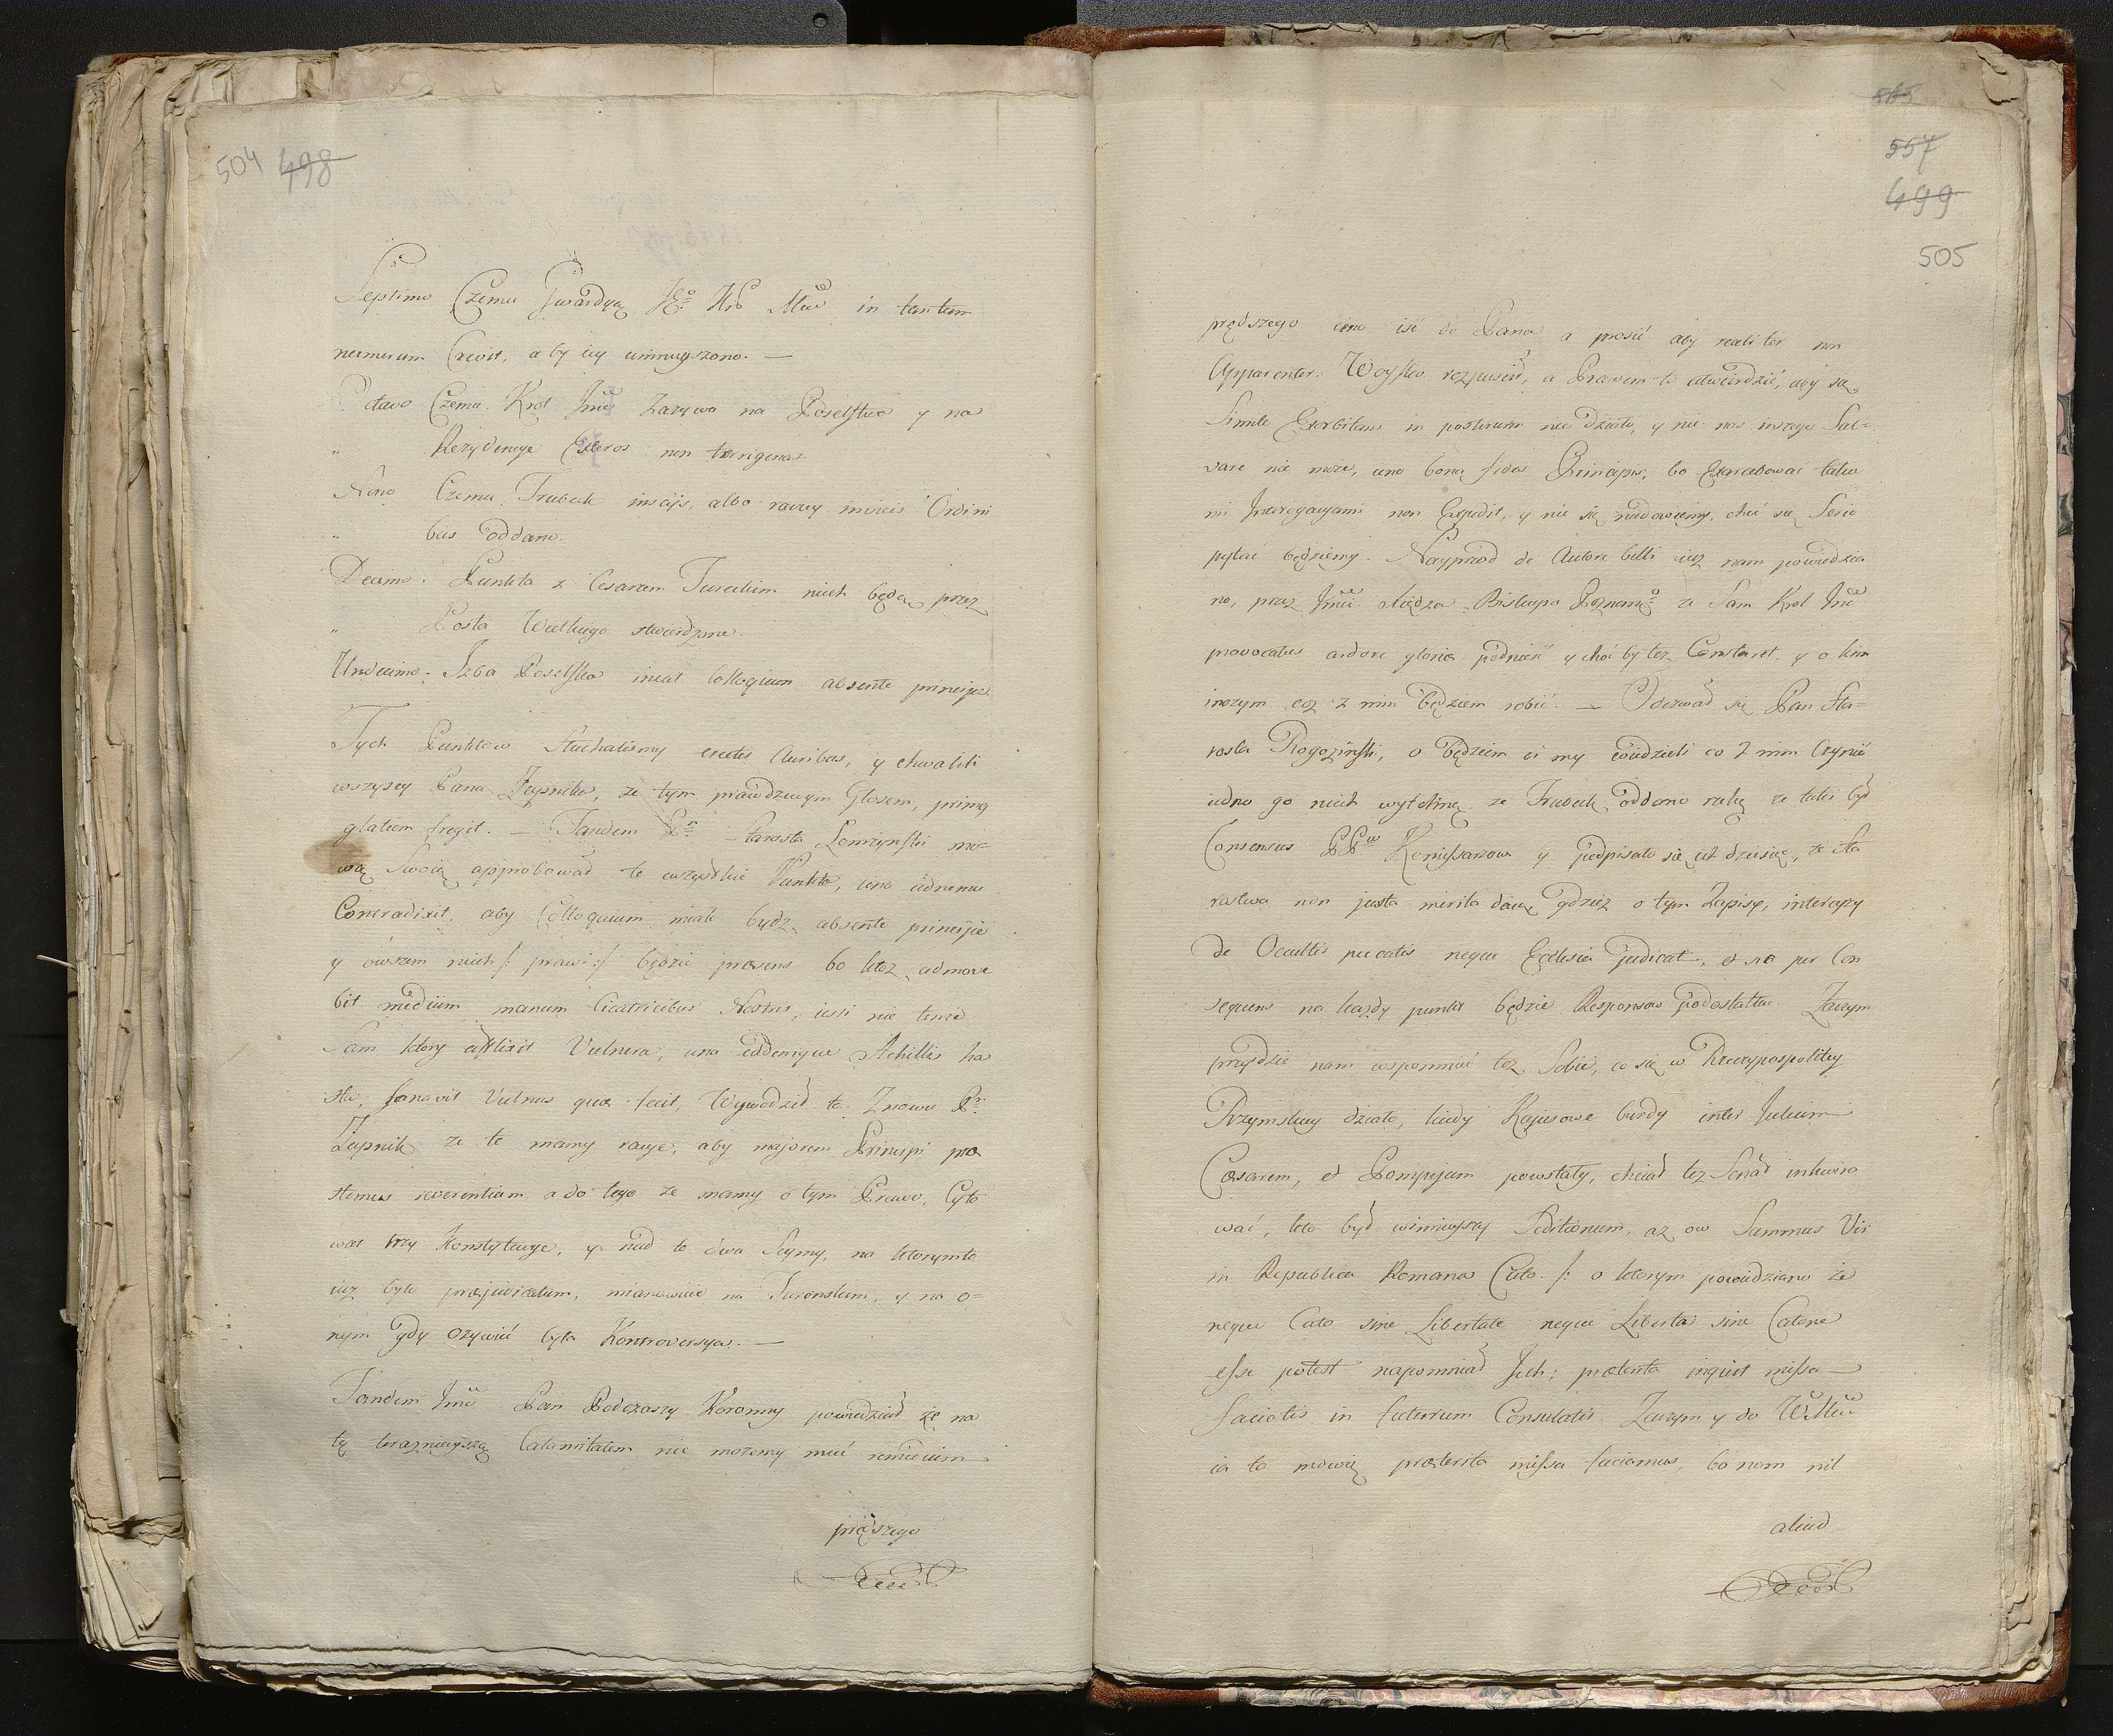 504 498
Septimo Czemu Gwardya JKo Kró Mci in tantum
numerum Crevit, aby iey umnieyszono. —
Octavo Czemu Krol Jmć Zazywa na Poselstwa y na
" Rezydencye Exteros non terrigenas.
Nono Czemu Trubeck insciis, albo raczey invitis Ordini
" bus oddano.
Decimo. Punkta z Cesarzem Tureckim niech będą przez
" Posła Wielkiego stwierdzone.
Undecimo. Izba Poselska ineat Colloquium absente principe.
Tych Punktow słuchalismy erectis Auribus, y chwalili
wszyscy Pana Zupnika, ze tym prawdziwym Głosem, primą
glaciem fregit. — Tandem Pn Starosta Lomzynski mo=
wą swoią approbował te wszystkie Punkta, ieno iednemu
Contradixit, aby Colloquium miało bydz absente principe
y owszem niech /: prawi :/ będzie præsens bo ktoz admove
bit medium manum Cicatricibus Nostris, iesli nie tenże
Sam ktory afflixit Vulnera, una eademque Achillis ha
sta, sanavit Vulnus quæ fecit, Wywodził to. Znowu Pn
Zupnik ze te mamy racye, aby majorem Principi præ
stemus reverentiam a do tego ze mamy o tym Prawo, Cyto
wał trzy Konstytucye, y nad to dwa Seymy, na ktorym to
iuz było præjudicatum, mianowicie na Turonskim, y na o=
nym gdy ozywić była Kontrowersya. —
Tandem Jmć Pan Podczaszy Koronny powiedział że na
tę teraznieyszą Calamitatem nie możemy mieć remedium
prędszego
557
499
505
prędszego ieno iść do Pana a prosić aby realiter non
Apparenter Woysko rozpuscił, a Prawem to utwierdzić, aby się
Simile Exorbitans in posterum nie działo, y nic nas inszego Sal=
vare nie może, ieno bona fides Principis, bo Exacerbować takie
mi Interogacyami non Expedit, y nic się nie dowiemy, choć się Serio
pytać będziemy. Nayprzod de Autore belli iuz nam powiedzia
no, przez Jmći Xiędza Biskupa Poznango ze Sam Krol Jmć
provocatus ardore gloriæ podniosł y choć by tez Constaret y o kim
inszym coz z nim będziem robić. — Odezwał się Pan Sta=
rosta Rogozinski, o będziem ci my wiedzieli co z nim Czynić
iedno go niech wytchną ze Trubeck oddano rzeką ze taki był
Consensus PPw Komissarzow y podpisało się ich dziesięć, ze Sta
rostwa non justa merita daią gdziez o tym Zapisy, interczyzy
de Occultis peccatis neque Ecclesia judicat, et sic per Con
sequens na kazdy punkt będzie Responsow podostatku. Zaczym
przydzie nam wspomnieć tez Sobie, co się w Rzeczypospolitey
Rzymskiey działo, kiedy Kajusowe burdy inter Julium
Cæsarem, et Pompejum powstały, chciał tez Senat inkwiro
wać, kto był winnieyszy Seditionum, az ow Summus Vir
in Republica Romana Cato. /: o ktorym powiedziano że
neque Cato sine Libertate neque Liberta sine Catone
esse potest napomniał Jch; præterita inquit missa
faciatis in futurum Consulatis. Zaczym y do WMći
ia to mowię præterita missa faciamus, bo nam nil
aliud